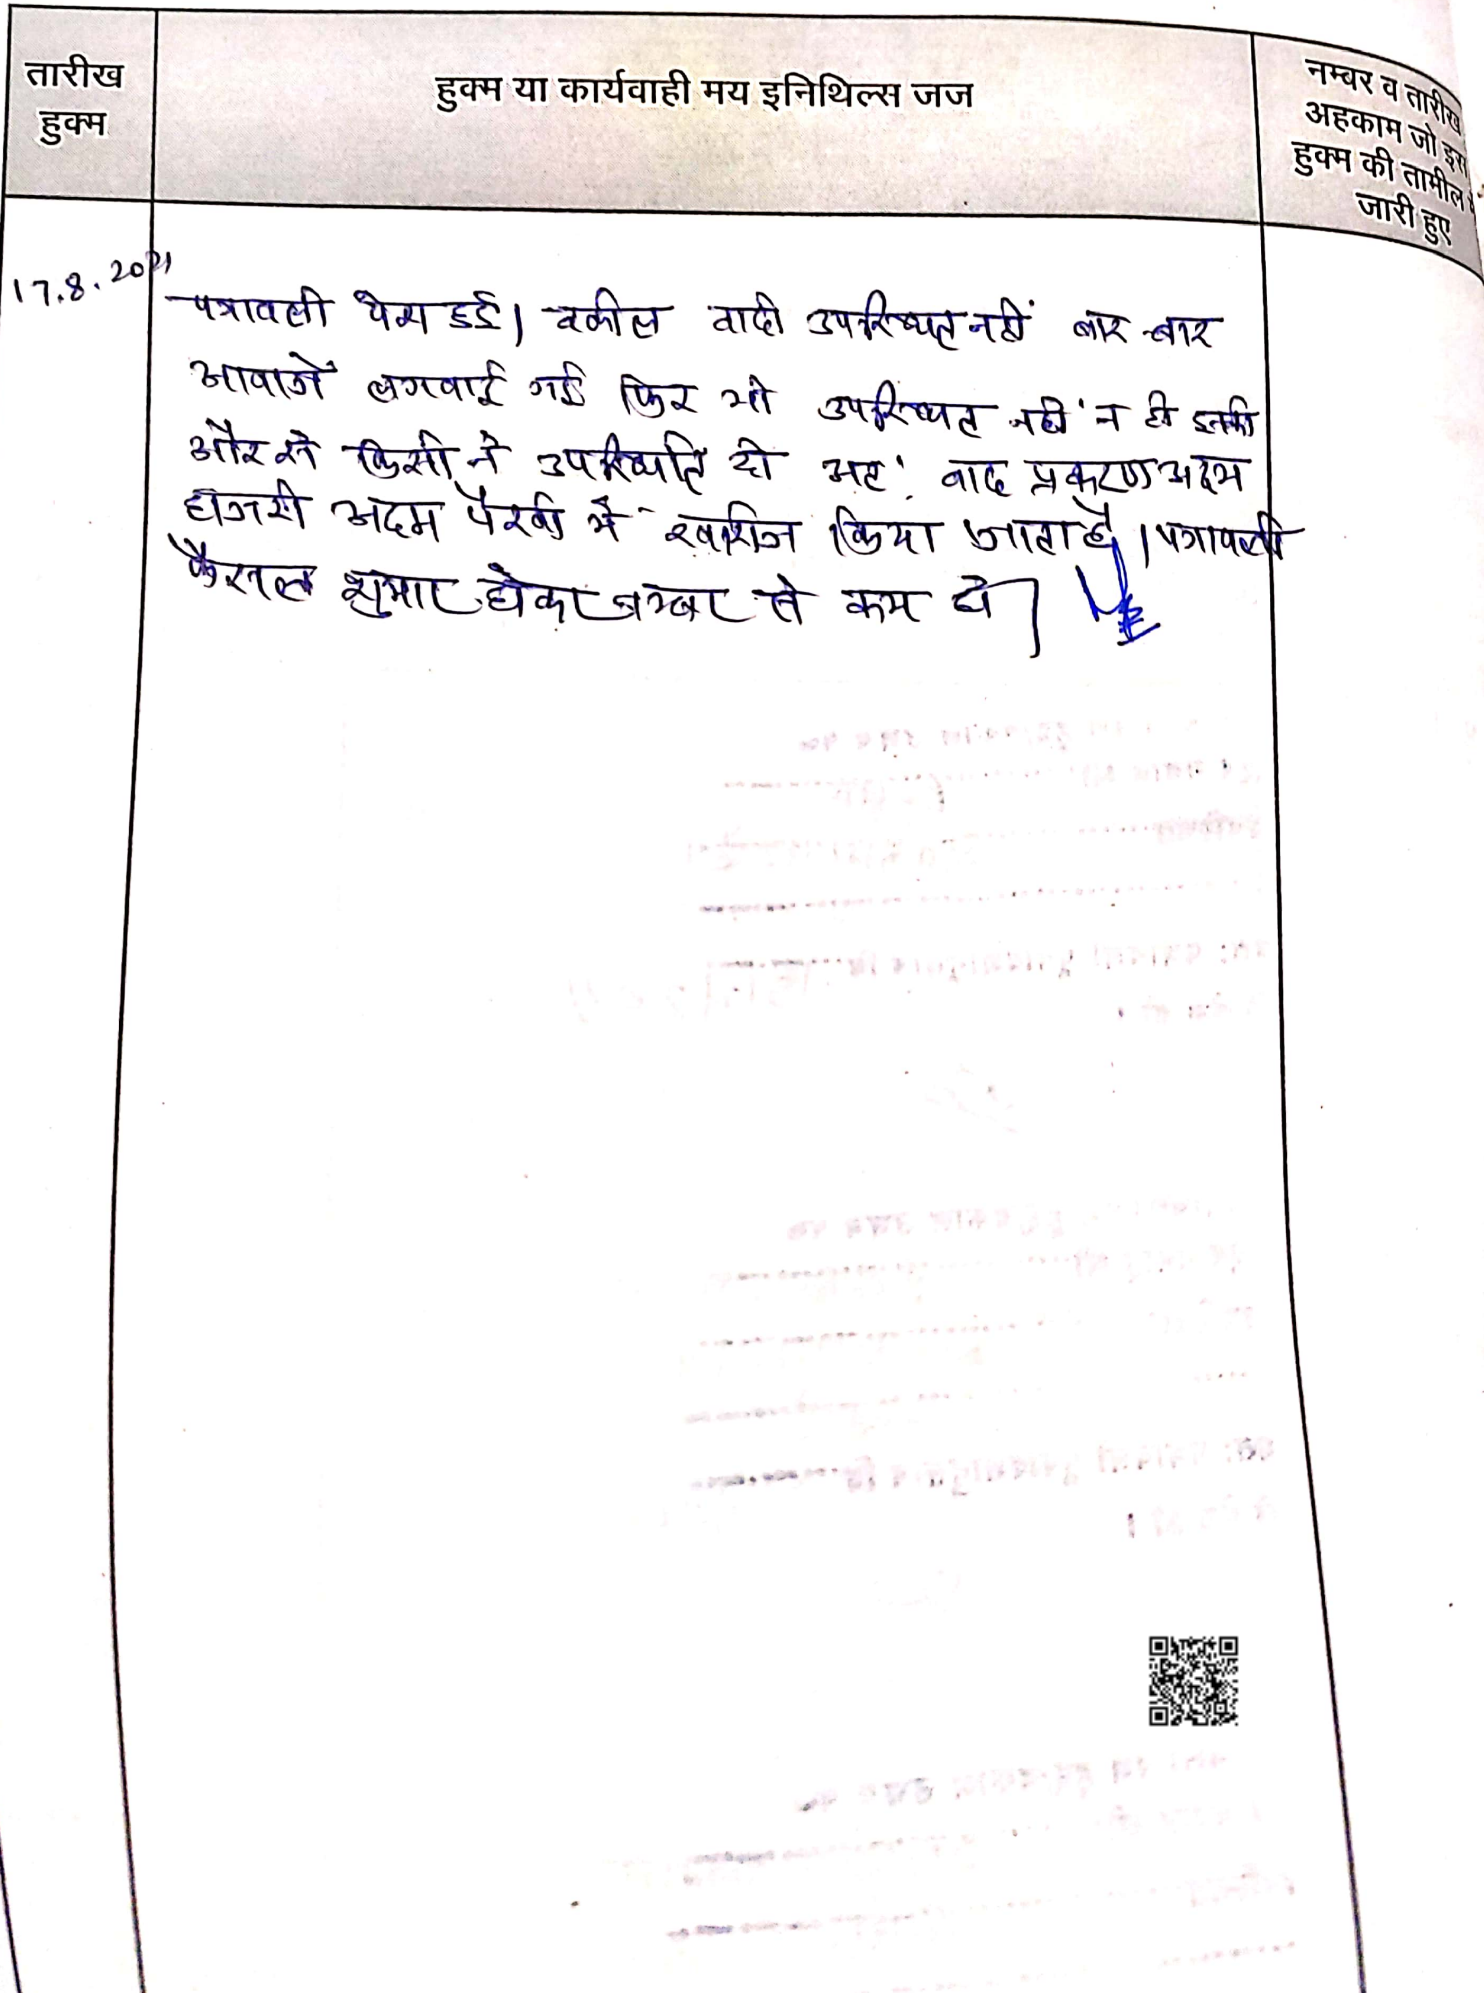 तारीख
हुक्म
हुक्म या कार्यवाही मय इनिथिल्स जज
नम्बर व तारीख
अहकाम जो इस
हुक्म की तामील में
जारी हुए
17.8.2021
पत्रावली पेश हुई। वकील वादी उपस्थित नहीं बार-बार
आवाजें लगवाई गई फिर भी उपस्थित नहीं न ही इनकी
और से किसी ने उपस्थिति दी अतः वाद प्रकरण अदम
हाजरी अदम पैरवी में खारिज किया जाता है। पत्रावली
फैसल शुमार होकर नम्बर से कम हो।